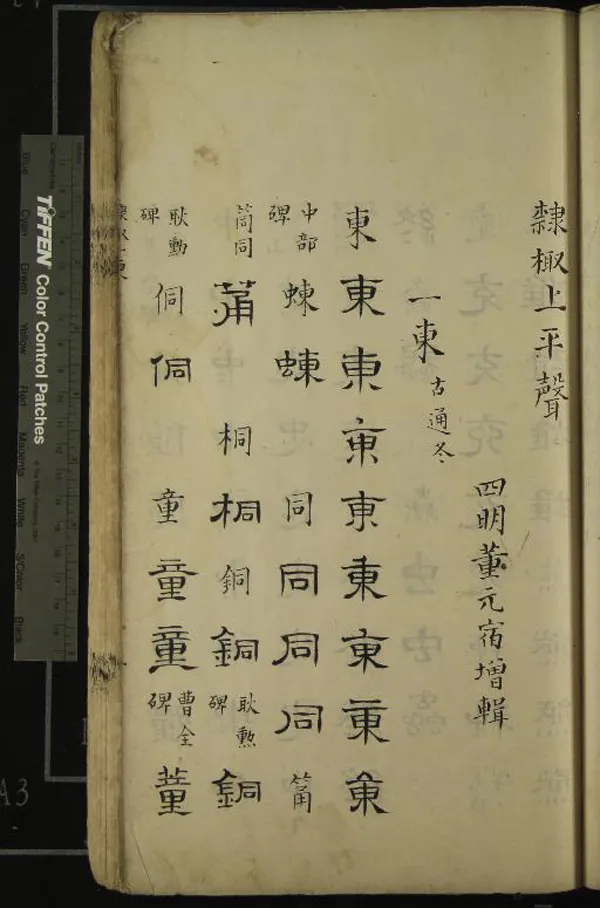 隸棷上平聲
四明董元宿增輯
一東 古通冬
東 東 東 東 東 東 東 東 東
中部碑 蝀 蝀 同 同 同 同 筩
筒同 筩 桐 桐 銅 銅 耿勲碑 銅
耿勲碑 侗 侗 童 童 童 曹全碑 董
TIFFEN Color Control Patches
Blue Cyan Green Yellow Red Magenta White 3/Color Black
A3